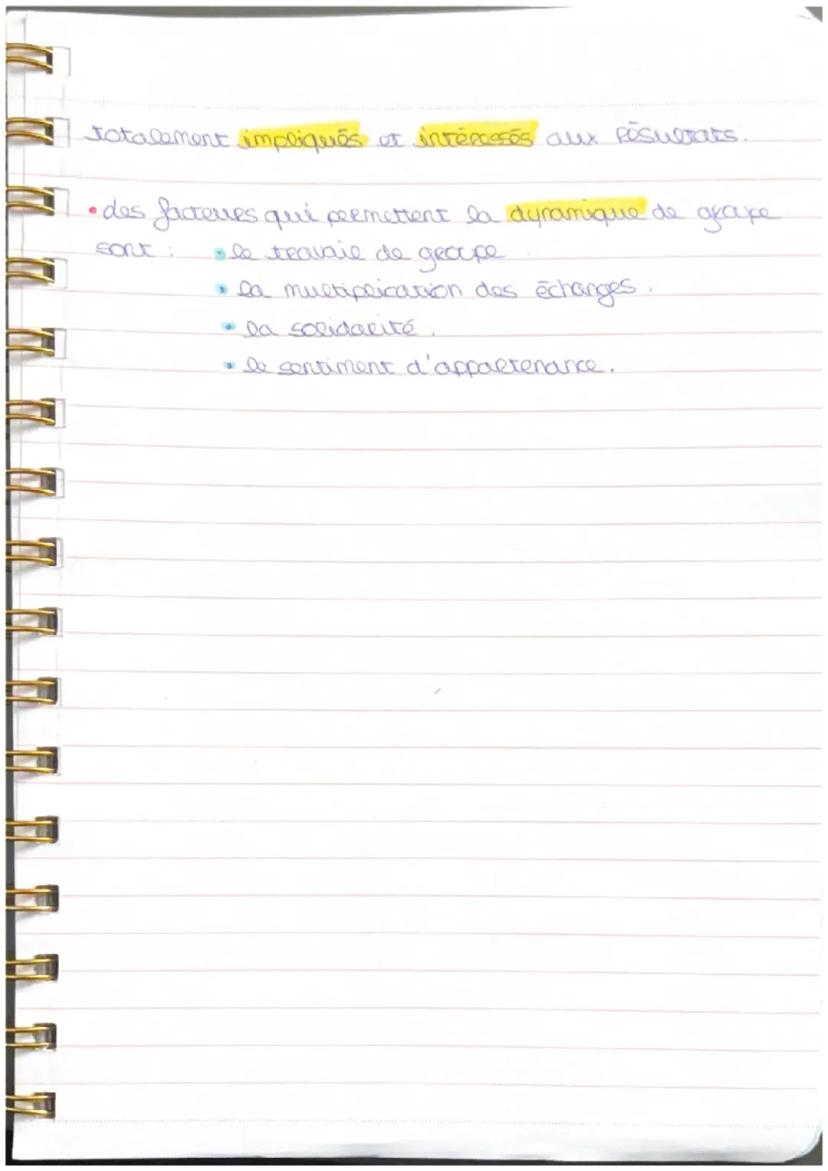 totalement impliqués et intéressés aux résultats.
• des facteurs qui permettent la dynamique de groupe
sont : • le travail de groupe
• la multiplication des échanges.
• la solidarité.
• le sentiment d'appartenance.